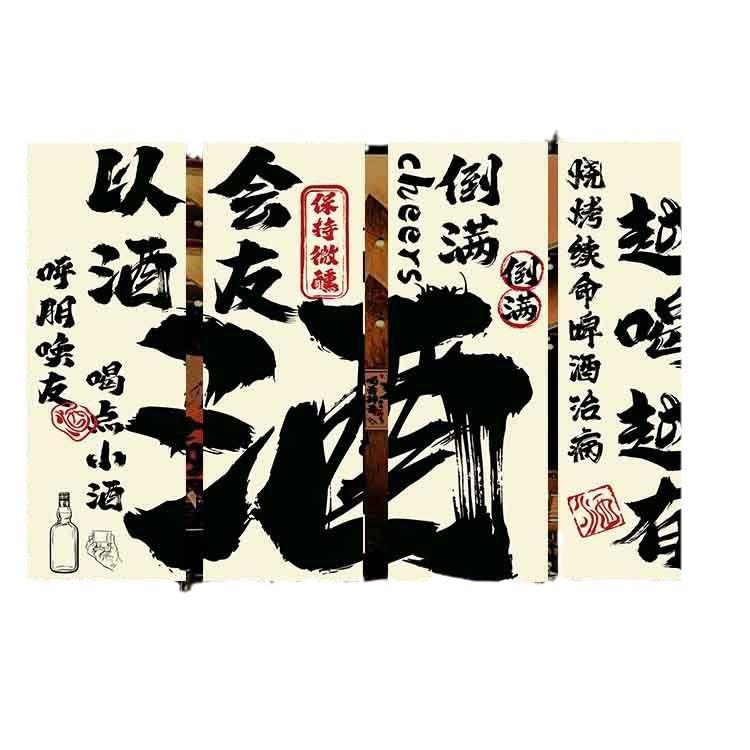 以酒
呼朋唤友
喝点小酒
会友
保持微醺
酒
cheers
倒满
倒满
烧烤续命啤酒治病
酒
越喝越有